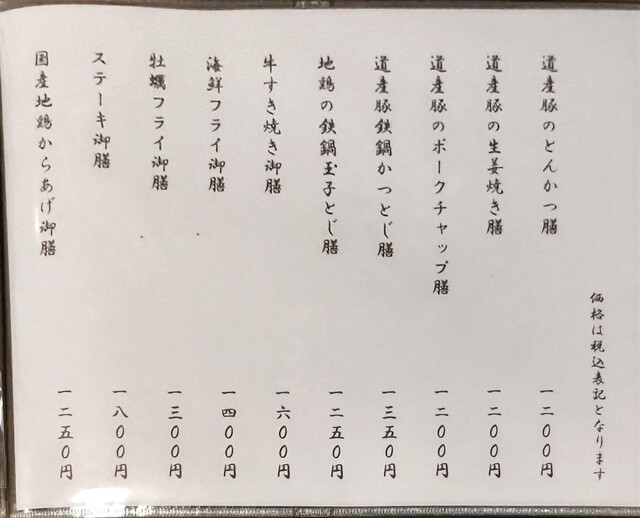 価格は税込表記となります
道産豚のとんかつ膳 一二００円
道産豚の生姜焼き膳 一二００円
道産豚のポークチャップ膳 一二００円
道産豚鉄鍋かつとじ膳 一三五０円
地鶏の鉄鍋玉子とじ膳 一二五０円
牛すき焼き御膳 一六００円
海鮮フライ御膳 一四００円
牡蠣フライ御膳 一三００円
ステーキ御膳 一八００円
国産地鶏からあげ御膳 一二五０円